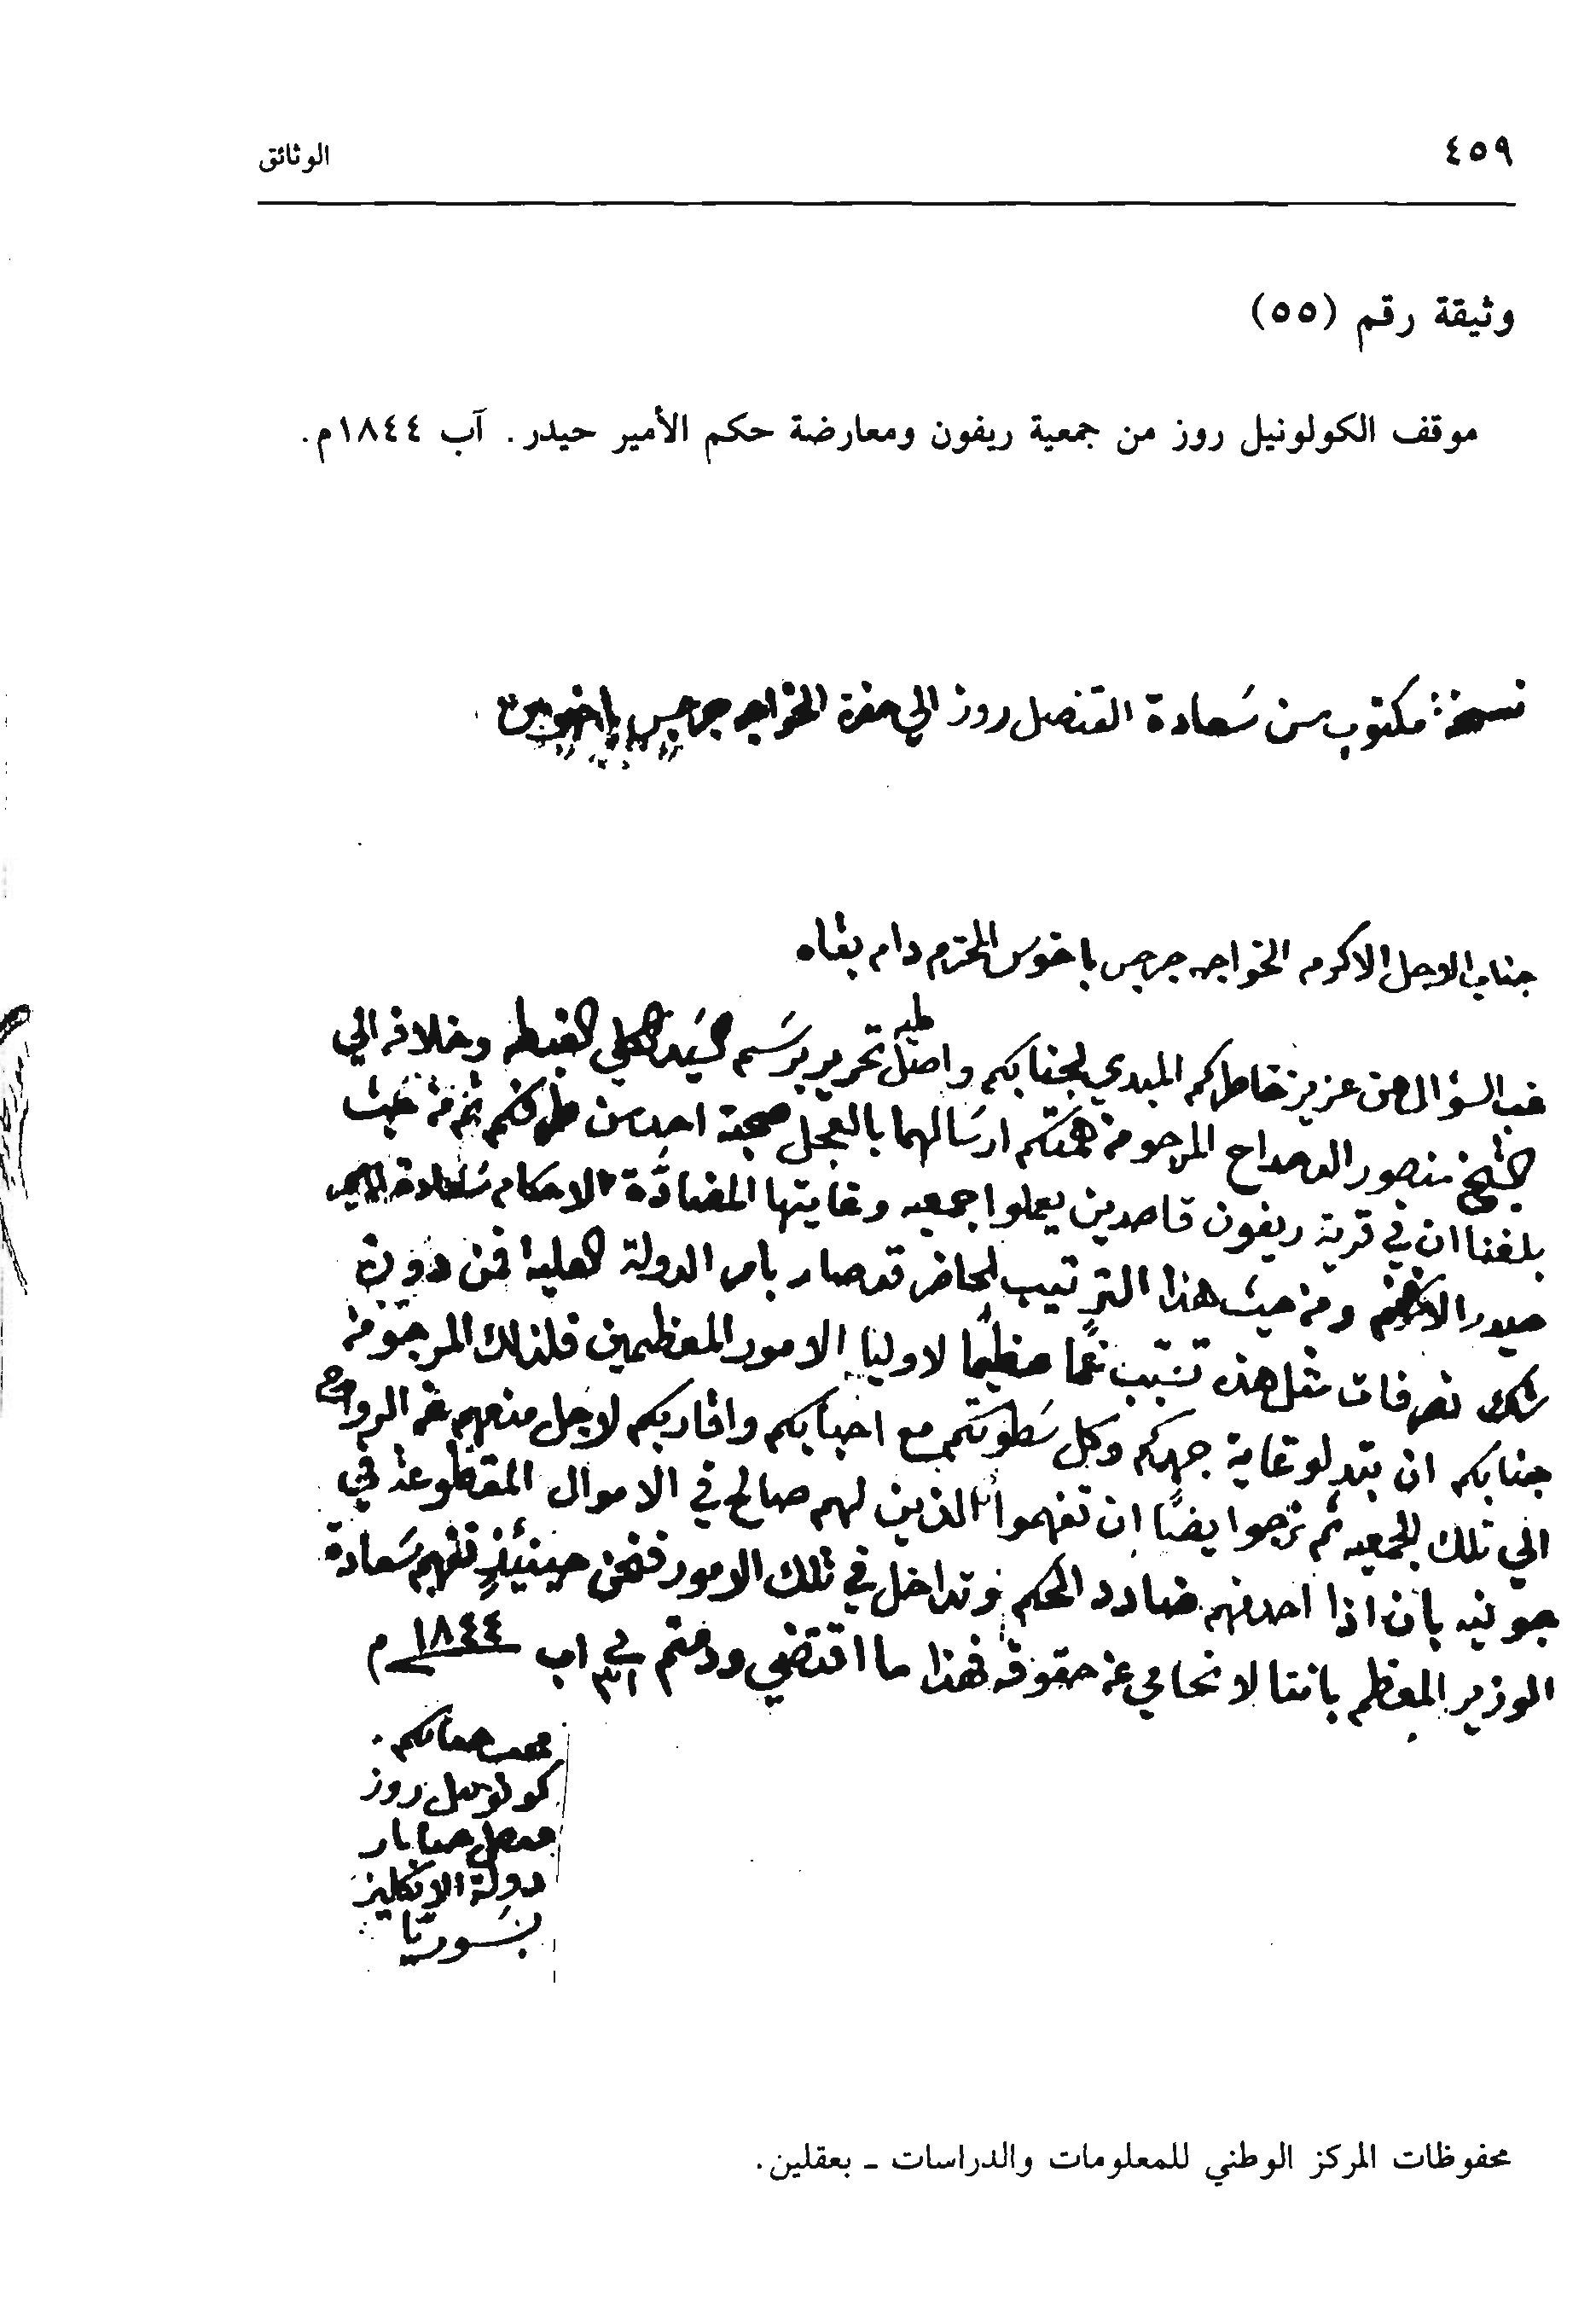 ٤٥٩
الوثائق
وثيقة رقم (٥٥)
موقف الكولونيل روز من جمعية ريفون ومعارضة حكم الأمير حيدر. آب ١٨٤٤م.
نسخة مكتوب من سعادة القنصل روز الي حضرة الخواجه جرجس باخوس
جناب الاجل الاكرم الخواجه جرجس باخوس المحترم دام بقاه
غب السؤال عن عزيز خاطركم المبدي لجنابكم واصل طيه تحرير برسم السيد الكلي الغبطه وخلافه الي
الشيخ منصور الدحداح المرجو من همتكم ارسالهما بالعجل صحبة احد من طرفكم ثم من حيث
بلغنا ان في قرية ريفون قاصدين يعملوا جمعيه وغايتها المضادة لاحكام سعادة الامير
حيدر الافخم ومن حيث هذا الترتيب الحاضر قد صار بامر الدولة العلية فمن دون
شك تصرفات مثل هذه تسبب غما عظيما لاوليا الامور المعظمين فلذلك المرجو من
جنابكم ان تبدلو غاية جهدكم وكل سطوتكم مع احبابكم واقاربكم لاجل منعهم عن الرواح
الي تلك الجمعيه ثم نرجوا يضًا ان تفهموا الذين لهم صالح في الاموال المقطوعة في
جونيه بان اذا احد منهم ضادد الحكم وتداخل في تلك الامور فنحن حينئذٍ نفهم سعادة
الوزير المعظم باننا لا نحامي عن حقوقه فهذا ما اقتضي ودمتم في ٣١ اب ١٨٤٤ م
محب جنابكم
كولونيل روز
قنصل جنرال
دولة الانكليز
بسوريا
محفوظات المركز الوطني للمعلومات والدراسات ـ بعقلين.